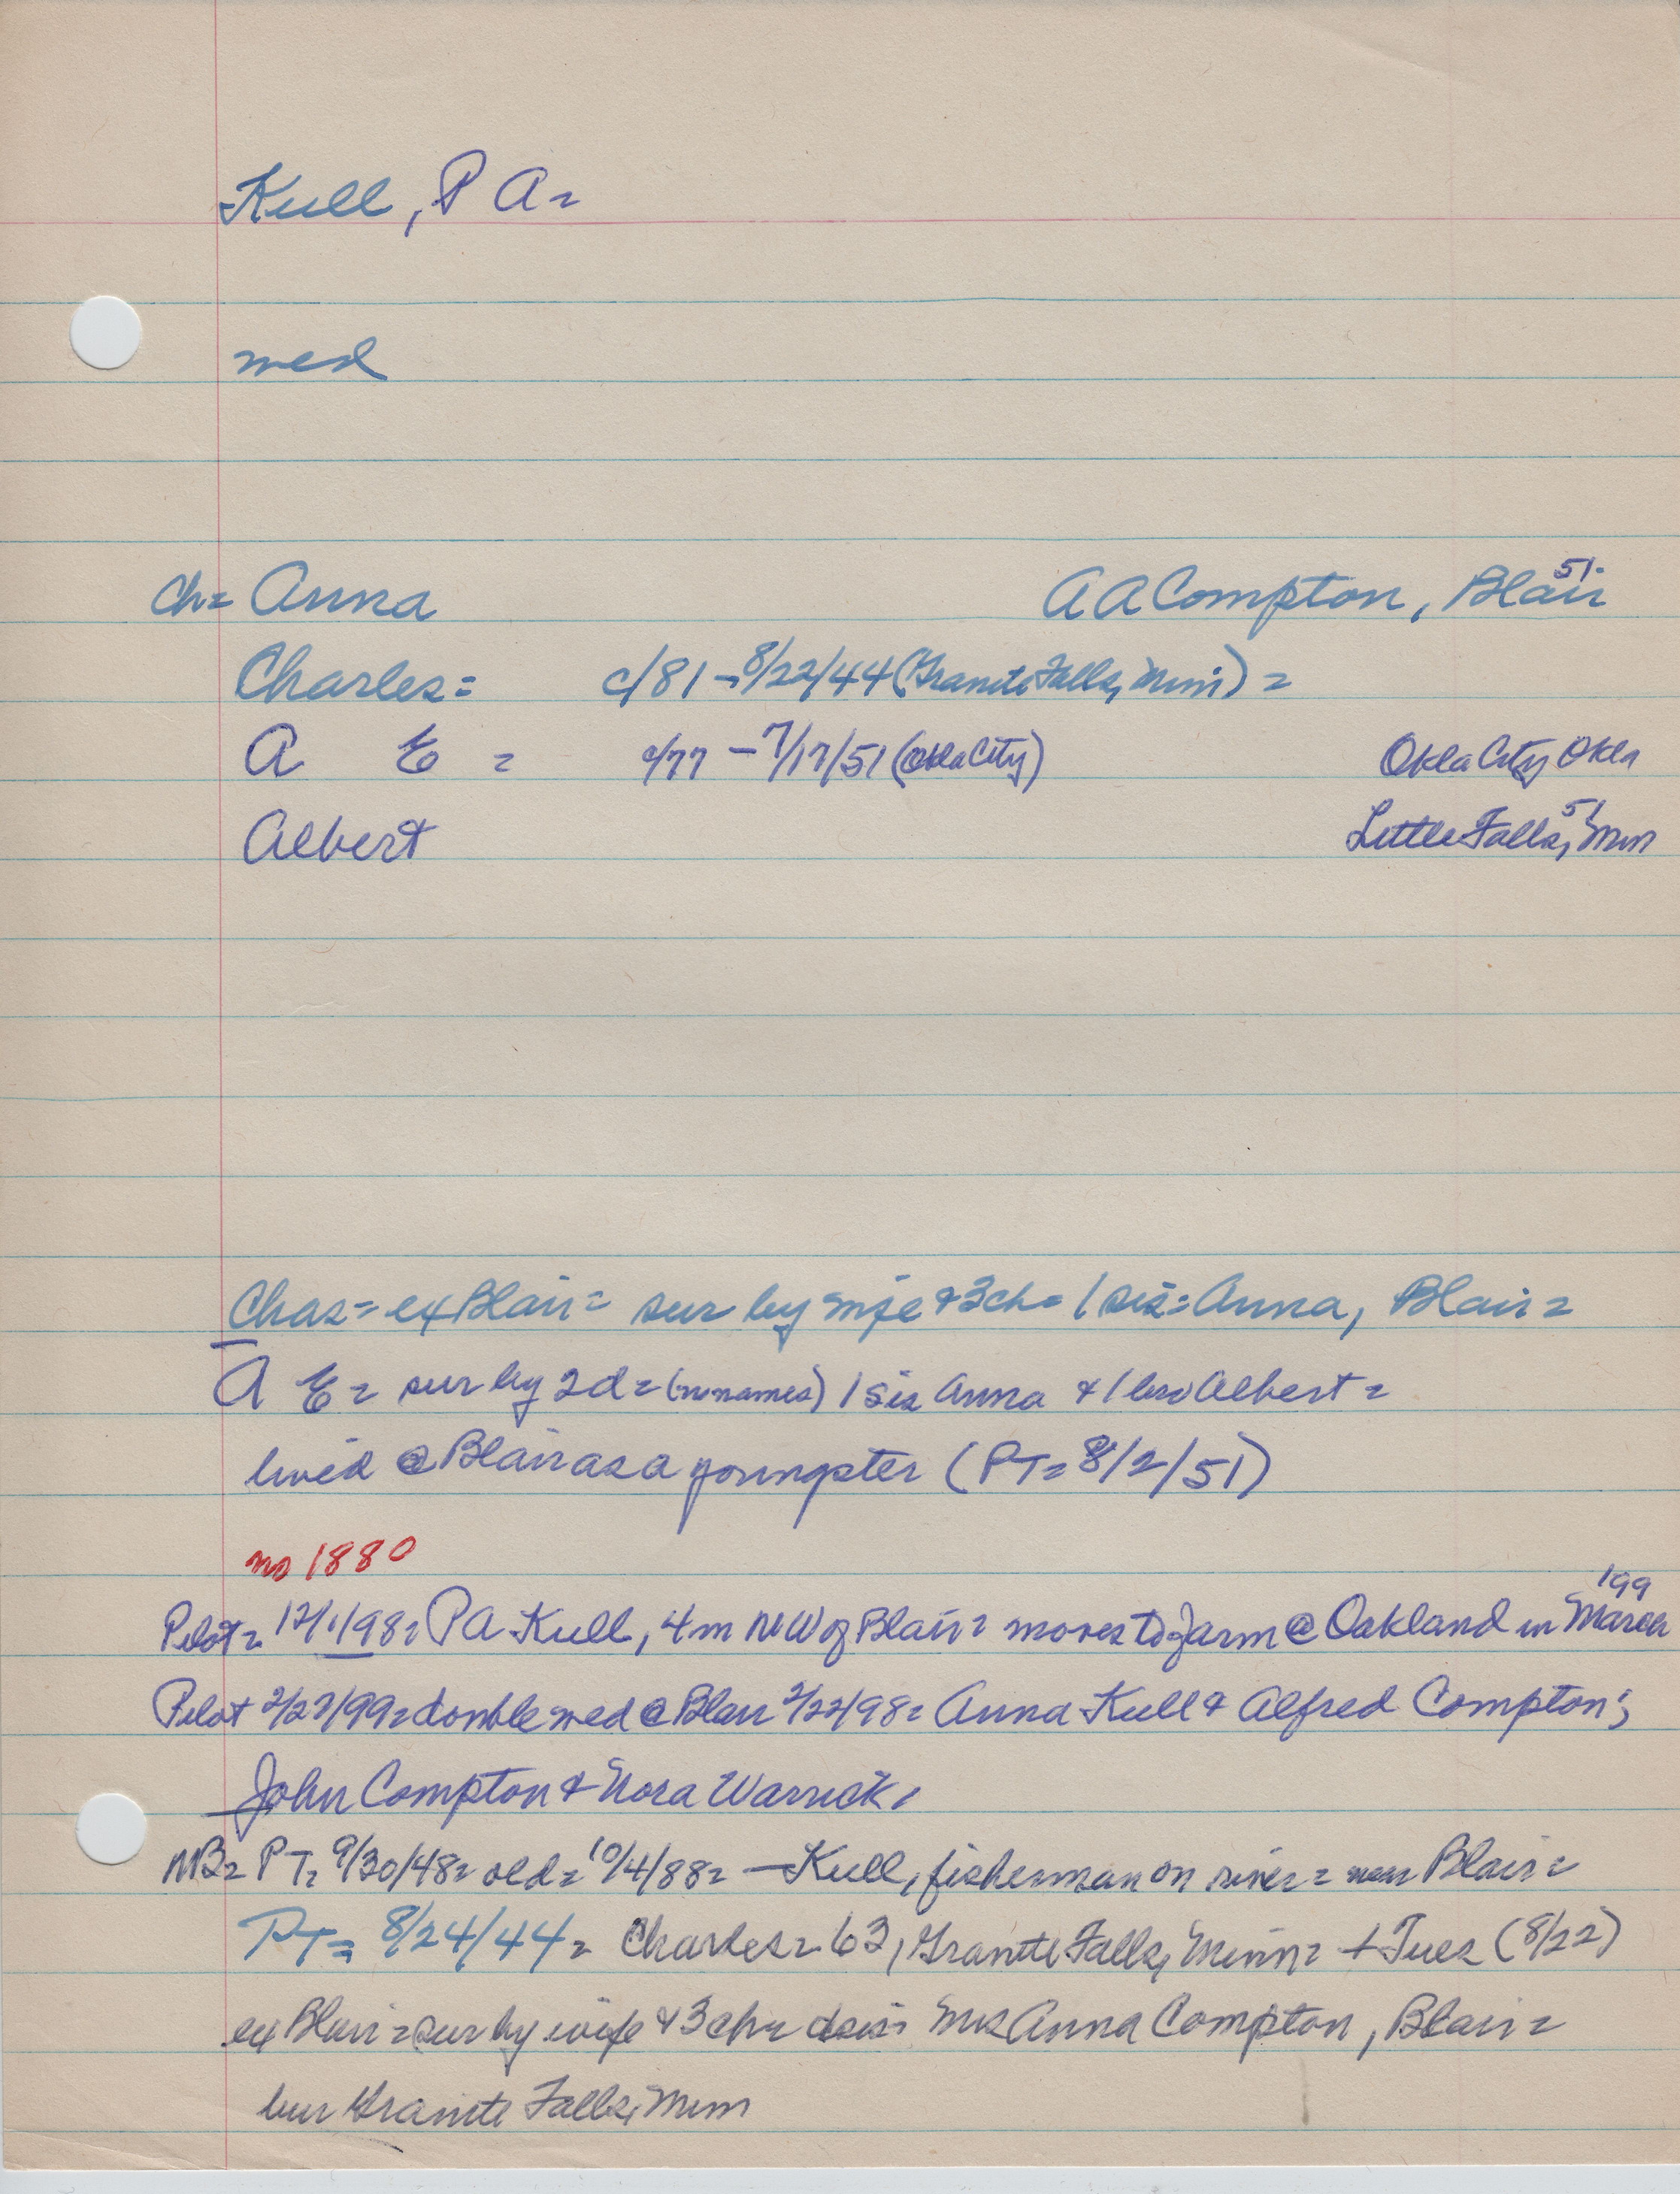 Kull, P A =
med
ch = Anna A A Compton, Blair 51
Charles = c/81 - 8/22/44 (Granite Falls, Minn) =
A E = c/77 - 7/17/51 (Okla City) Okla City Okla
Albert Little Falls, Minn 51
Chas = ex Blair = sur by wife & 3 ch = 1 sis = Anna, Blair =
A E = sur by 2 d = (no names) 1 sis Anna & 1 bro Albert =
lived @ Blair as a youngster (PT = 8/2/51)
no 1880
Pilot = 12/1/98 = P A Kull, 4 m NW of Blair = moves to farm @ Oakland in March '99
Pilot 2/27/99 = double wed @ Blair 2/22/98 = Anna Kull & Alfred Compton;
John Compton & Nora Warrick,
NB = PT = 9/30/48 = old = 10/4/88 = — Kull, fisherman on river = near Blair =
PT = 8/24/44 = Charles = 63, Granite Falls, Minn = + Tues (8/22)
ex Blair = sur by wife & 3 ch = sis Mrs Anna Compton, Blair =
bur Granite Falls, Minn